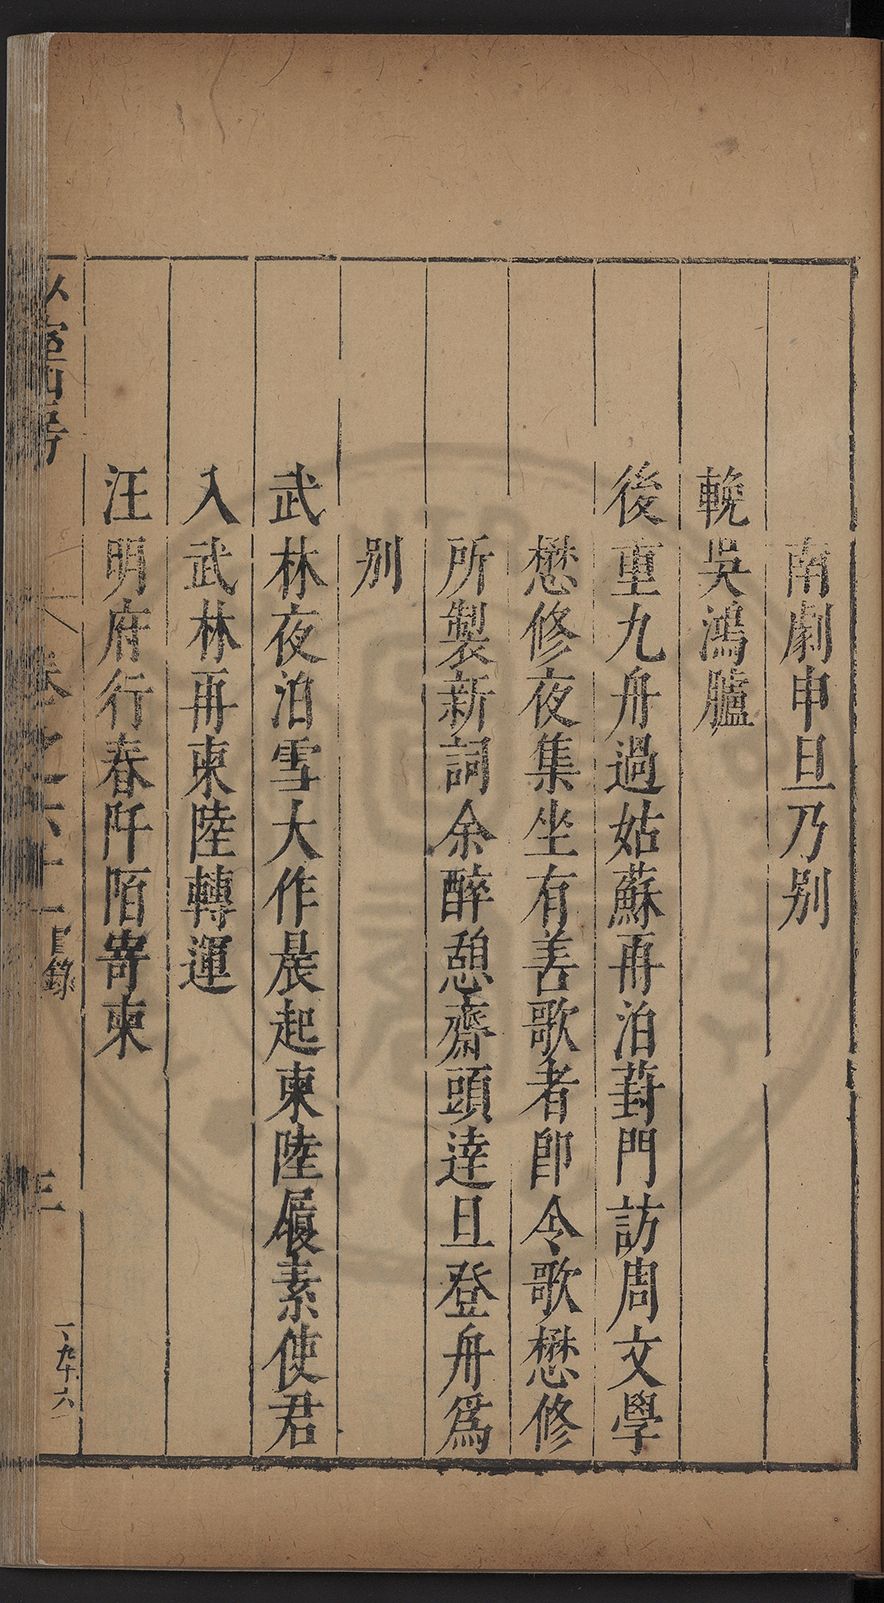 南劇申旦乃别
輓吳鴻臚
後重九舟過姑蘇再泊葑門訪周文學
懋修夜集坐有善歌者卽令歌懋修
所製新詞余醉憩齋頭達旦登舟爲
别
武林夜泊雪大作晨起柬陸履素使君
入武林再柬陸轉運
汪明府行春阡陌寄柬
卷之六十一
目錄
三